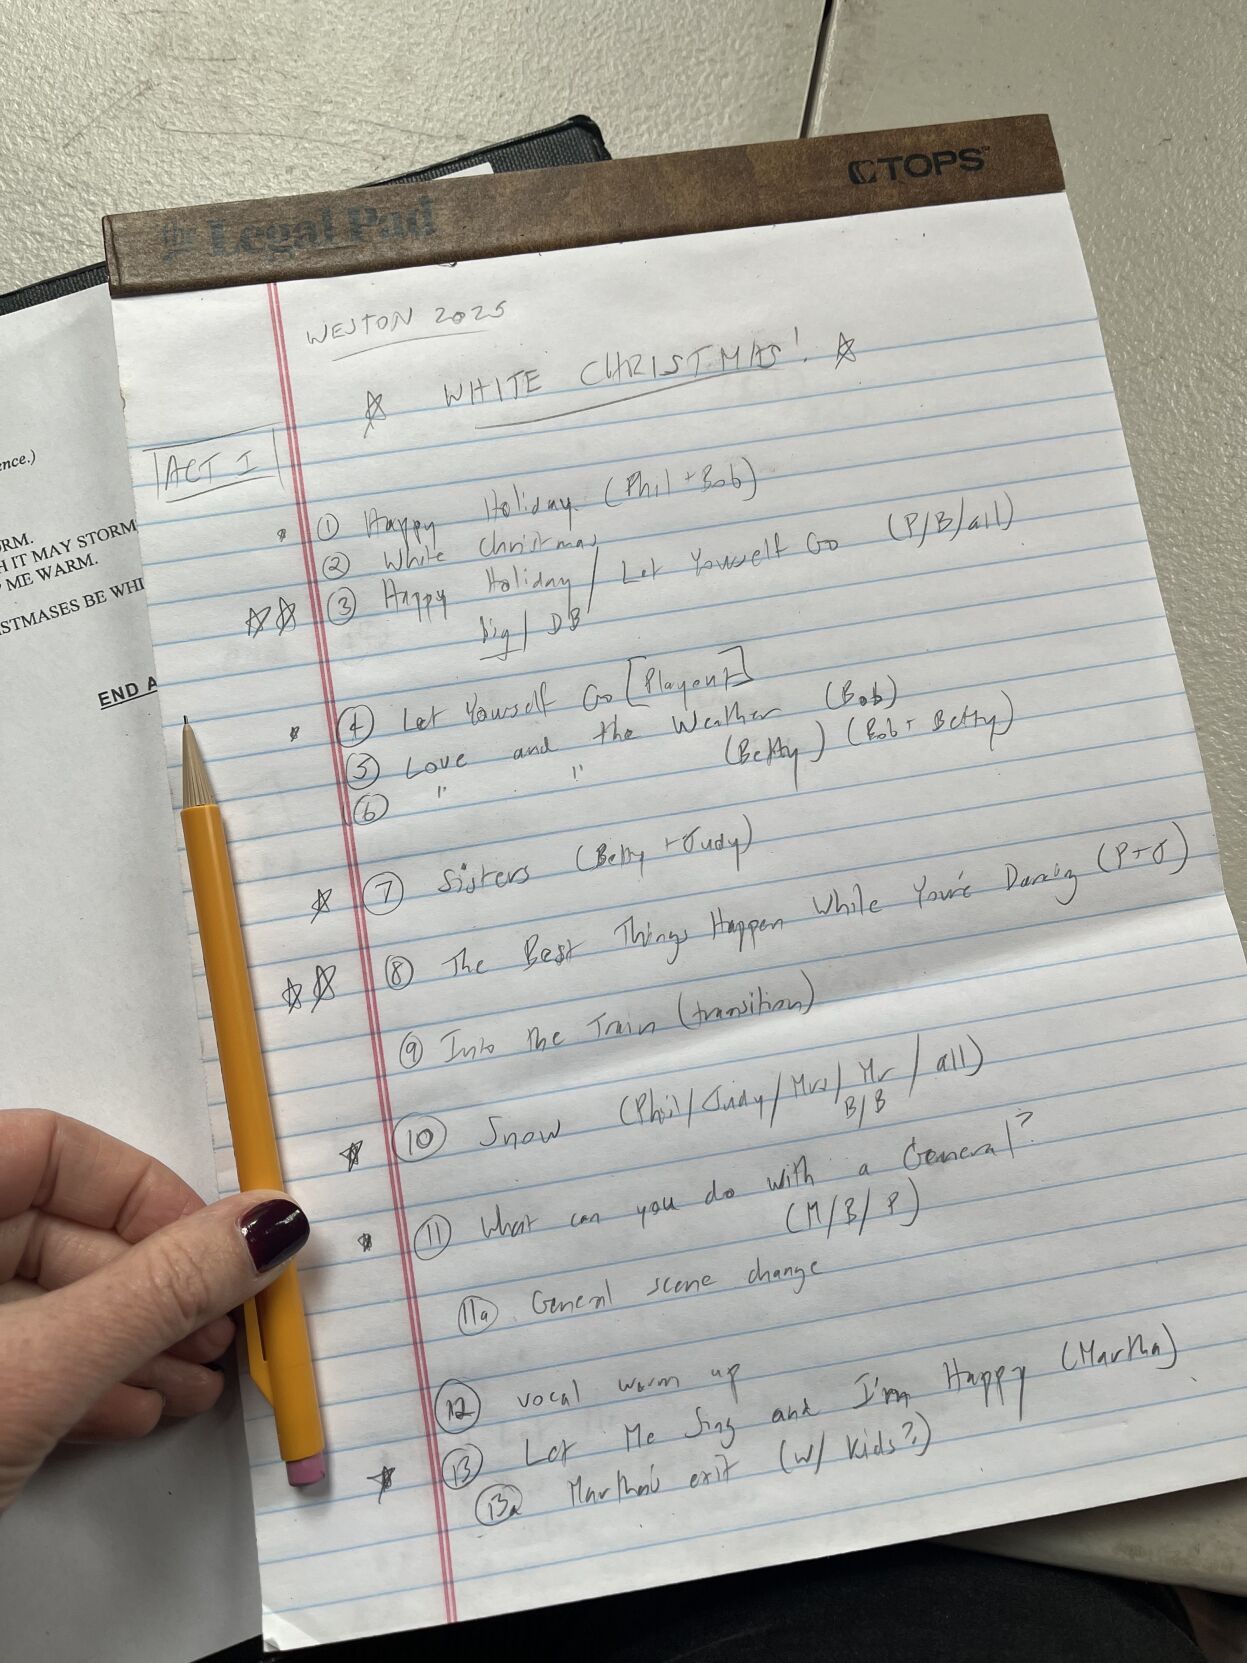 CTOPS™
the Legal Pad
WESTON 2025
☆ WHITE CHRISTMAS! ☆
ACT I
① Happy Holiday (Phil + Bob)
② White Christmas
☆☆ ③ Happy Holiday / Let Yourself Go (P/B/all)
big / DB
④ Let Yourself Go [Playout]
⑤ Love and the Weather (Bob)
⑥ " " (Betty) (Bob + Betty)
☆ ⑦ Sisters (Betty + Judy)
☆☆ ⑧ The Best Things Happen While You're Dancing (P+J)
⑨ Into the Train (transition)
☆ ⑩ Snow (Phil/Judy/Mrs/Mr / all)
B/B
⑪ What can you do with a General?
(M/B/P)
11a General scene change
⑫ vocal warm up
☆ ⑬ Let Me Sing and I'm Happy (Martha)
13a Martha's exit (w/ kids?)
ence.)
RM.
H IT MAY STORM
ME WARM.
STMASES BE WHI
END A